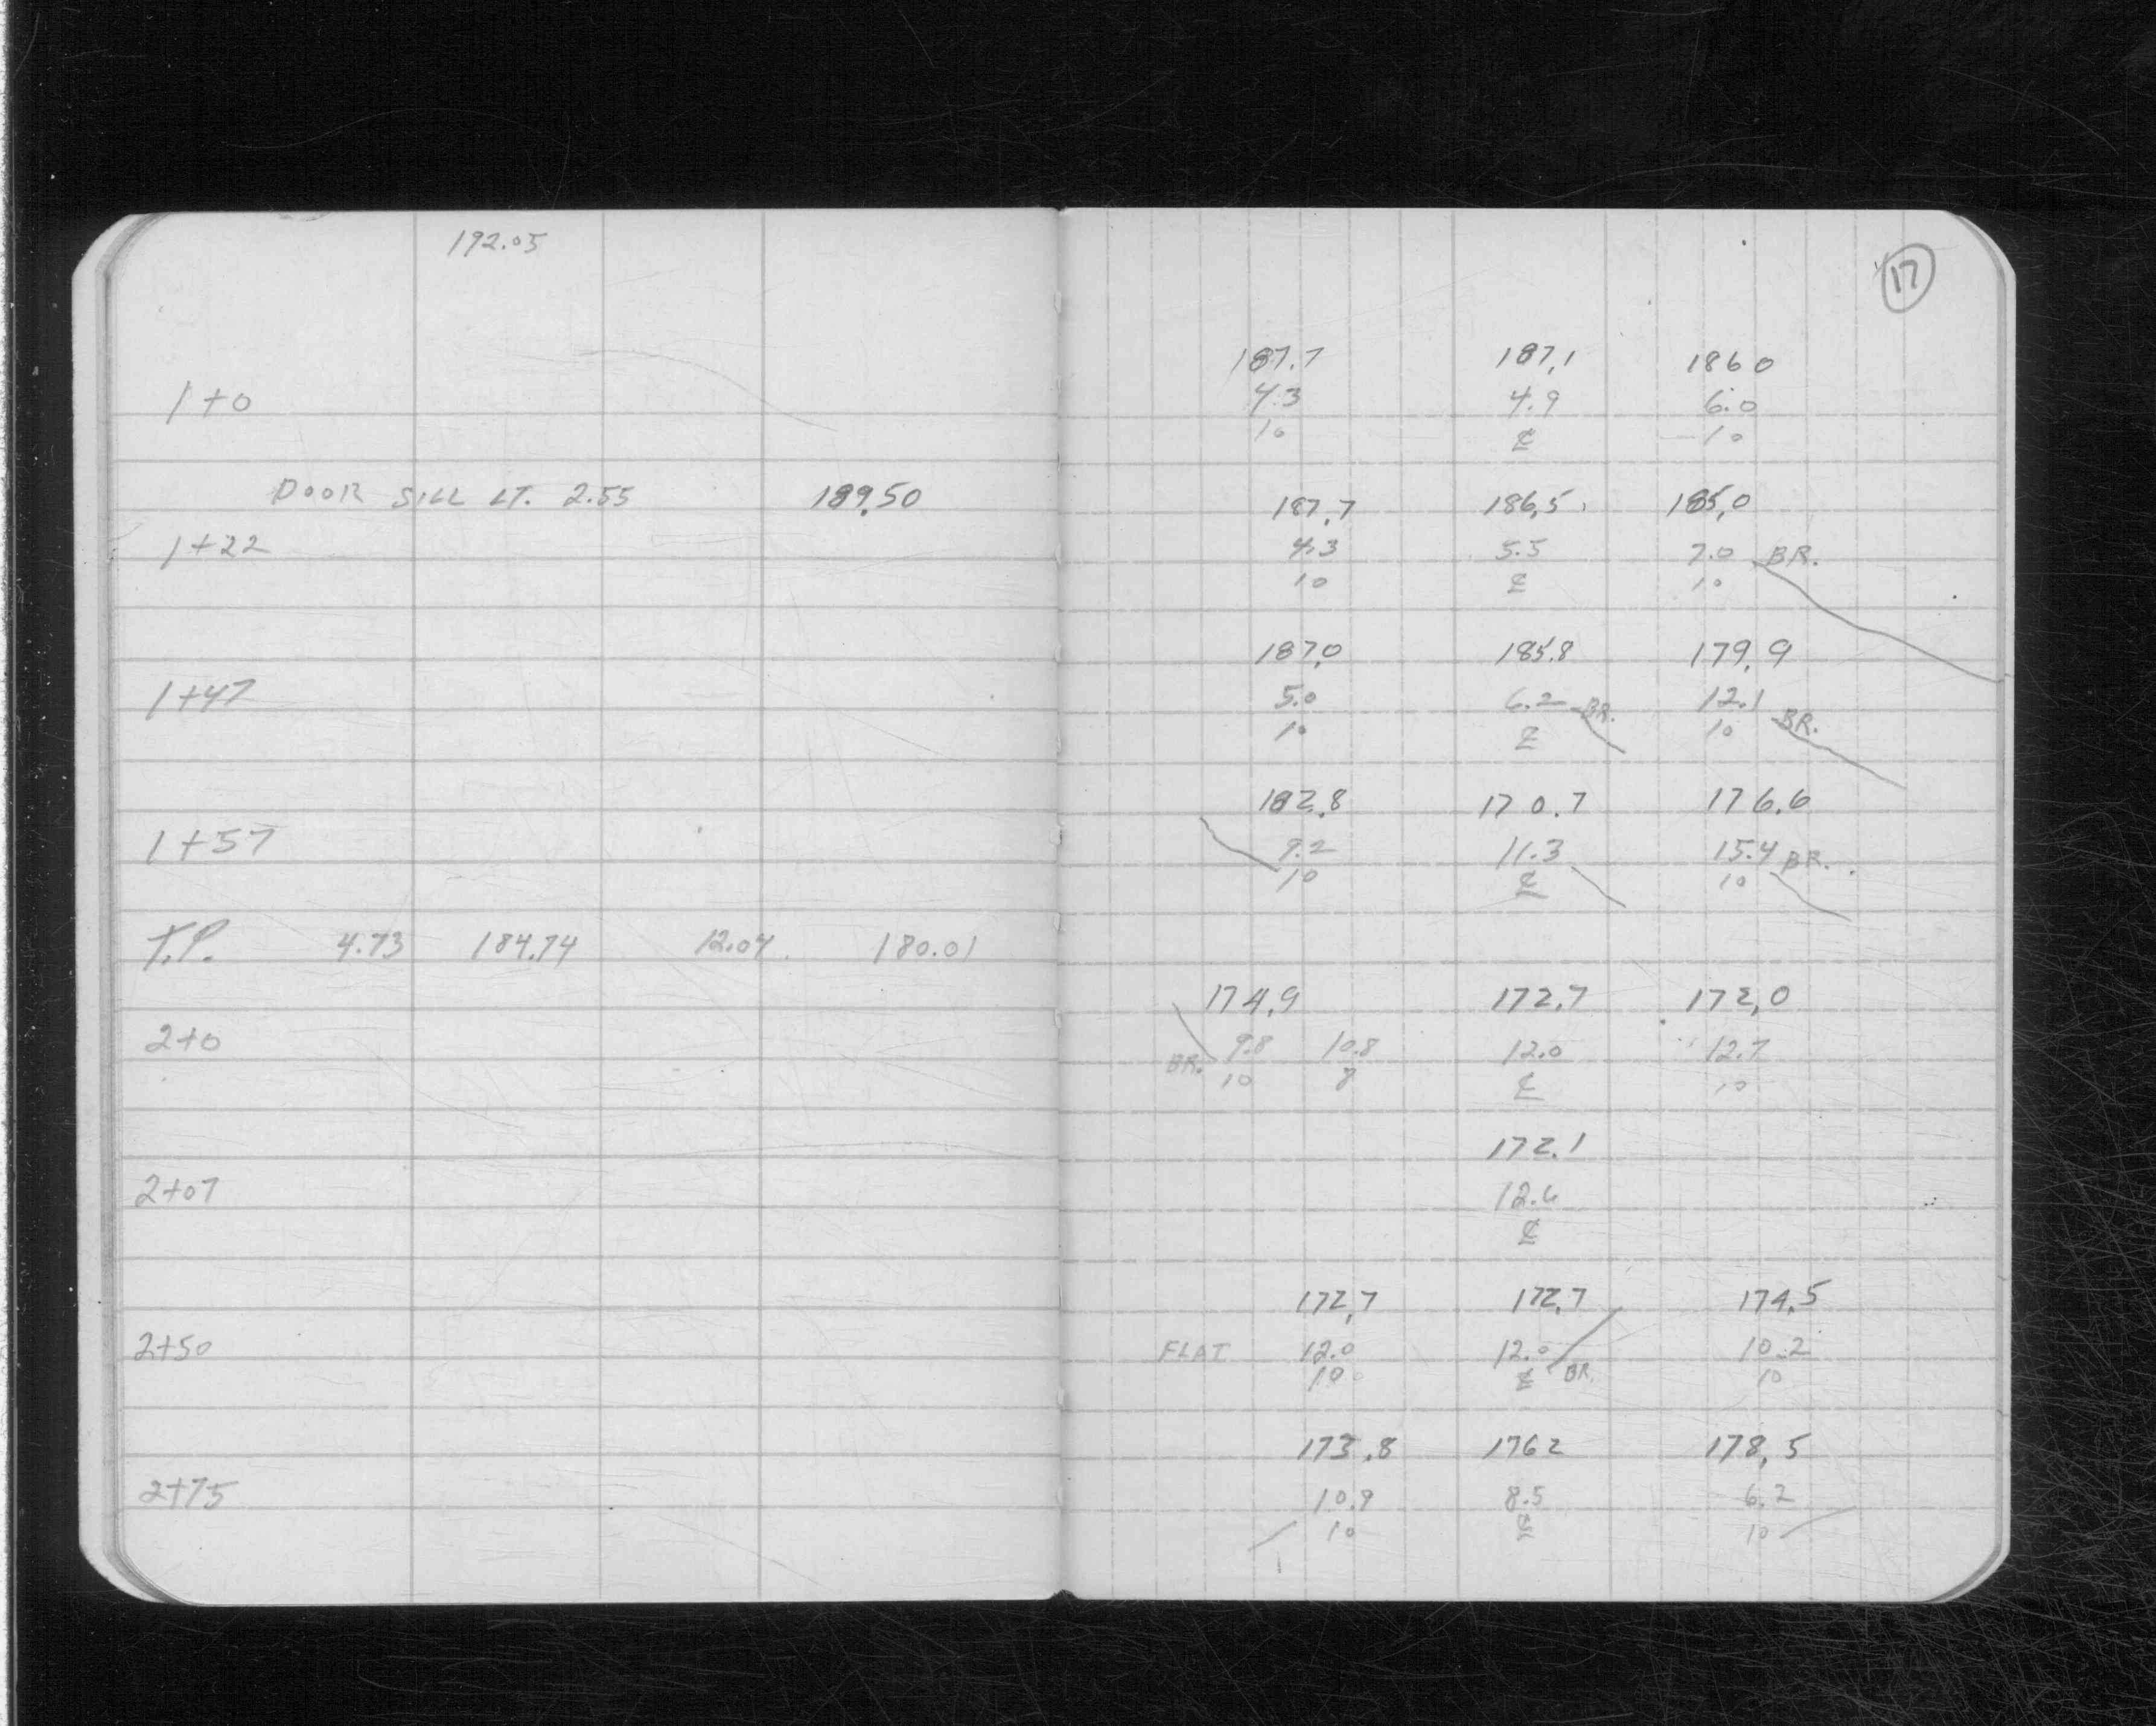 192.05
17
187.7 187.1 186 0
1+0 4.3 4.9 6.0
10 ℄ 10
DOOR SILL LT. 2.55 189.50 187.7 186.5 185.0
1+22 4.3 5.5 7.0 BR.
10 ℄ 10
187.0 185.8 179.9
1+47 5.0 6.2 BR. 12.1 BR.
10 ℄ 10
182.8 170.7 176.6
1+57 9.2 11.3 15.4 BR.
10 ℄ 10
T.P. 4.73 184.74 12.04 180.01
174.9 172.7 172.0
2+0 BR. 9.8 10.8 12.0 12.7
10 8 ℄ 10
172.1
2+07 12.6
℄
172.7 172.7 174.5
2+50 FLAT 12.0 12.0 10.2
10 ℄ BR. 10
173.8 176 2 178.5
2+75 10.9 8.5 6.2
10 ℄ 10